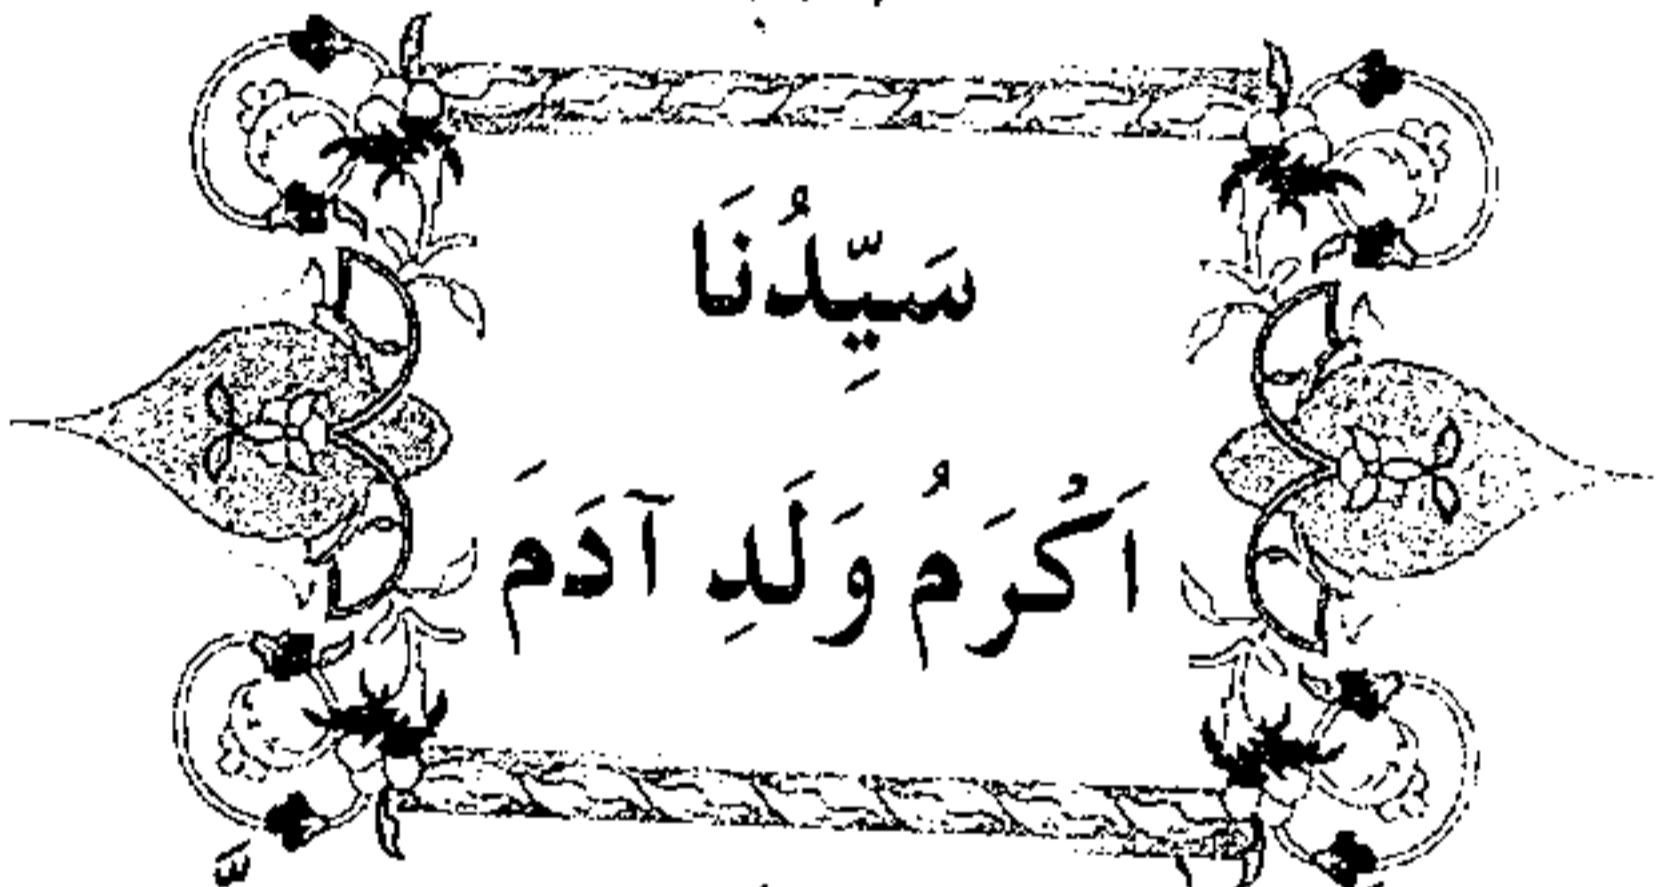 سَيِّدُنَا
اَکْرَمُ وَلَدِ آدَمَ